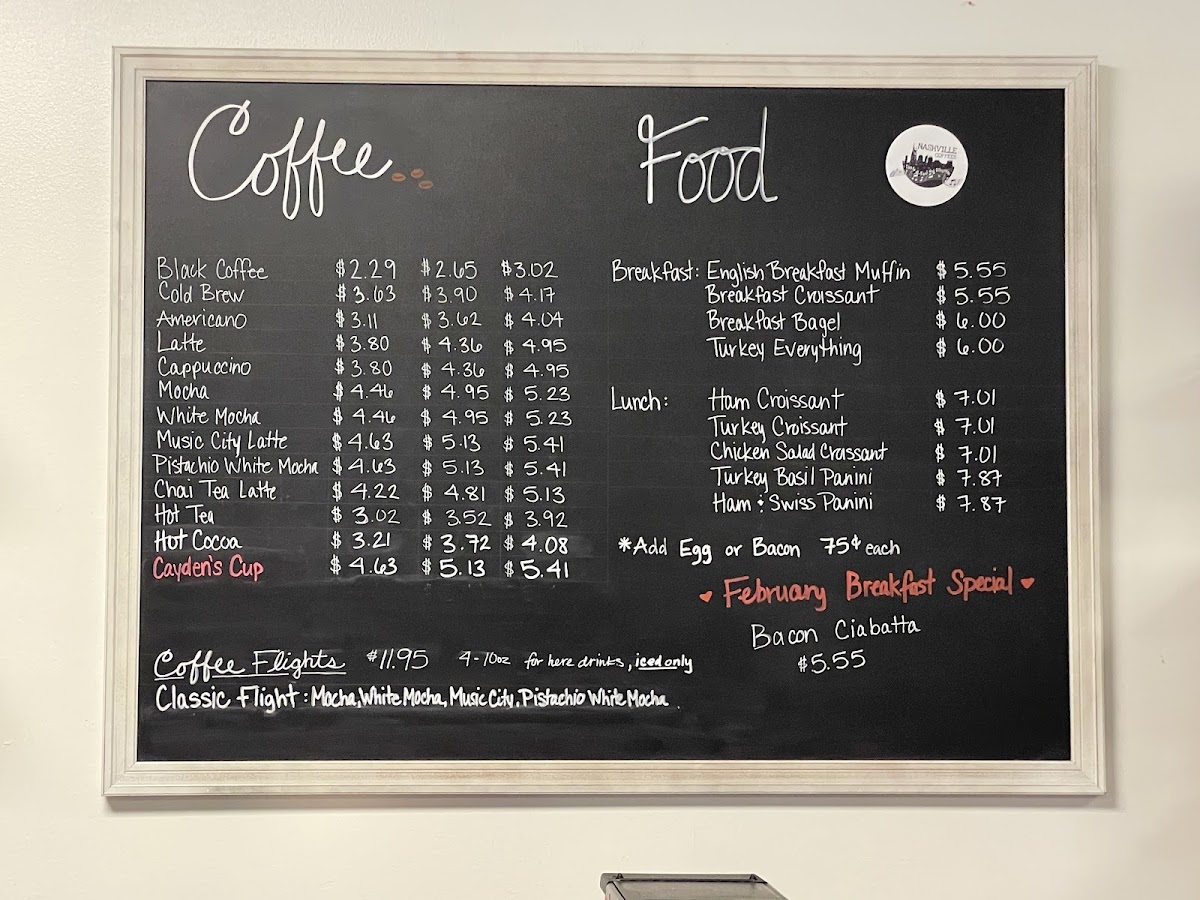 Coffee
Black Coffee $2.29 $2.65 $3.02
Cold Brew $3.63 $3.90 $4.17
Americano $3.11 $3.62 $4.04
Latte $3.80 $4.36 $4.95
Cappuccino $3.80 $4.36 $4.95
Mocha $4.46 $4.95 $5.23
White Mocha $4.46 $4.95 $5.23
Music City Latte $4.63 $5.13 $5.41
Pistachio White Mocha $4.63 $5.13 $5.41
Chai Tea Latte $4.22 $4.81 $5.13
Hot Tea $3.02 $3.52 $3.92
Hot Cocoa $3.21 $3.72 $4.08
Cayden's Cup $4.63 $5.13 $5.41
Coffee Flights $11.95 4-10oz for here drinks, iced only
Classic Flight: Mocha, White Mocha, Music City, Pistachio White Mocha
Food
NASHVILLE
COFFEES
Breakfast: English Breakfast Muffin $5.55
Breakfast Croissant $5.55
Breakfast Bagel $6.00
Turkey Everything $6.00
Lunch: Ham Croissant $7.01
Turkey Croissant $7.01
Chicken Salad Croissant $7.01
Turkey Basil Panini $7.87
Ham & Swiss Panini $7.87
*Add Egg or Bacon 75¢ each
February Breakfast Special
Bacon Ciabatta
$5.55